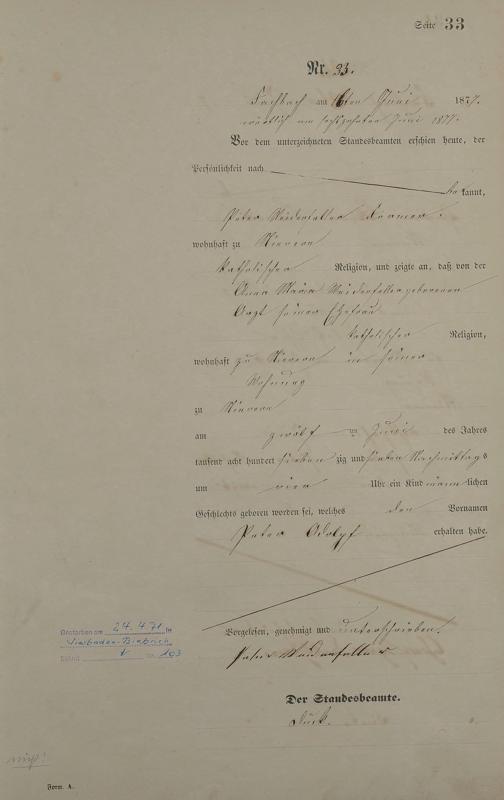 Seite 33
Nr. 33.
Fachbach am 16ten Juni 1877.
wörtlich am sechszehnten Juni 1877.
Vor dem unterzeichneten Standesbeamten erschien heute, der
Persönlichkeit nach
be kannt,
Peter Weidenfeller
wohnhaft zu Nievern
katholischer Religion, und zeigte an, daß von der
Anna Maria Weidenfeller geborenen
Arzt seiner Ehefrau
katholischer Religion,
wohnhaft zu Nievern in seiner
Wohnung
zu Nievern
am zwölf ten Juni des Jahres
tausend acht hundert sieben zig und sieben Nachmittags
um vier Uhr ein Kind männ lichen
Geschlechts geboren worden sei, welches den Vornamen
Peter Adolpf erhalten habe.
Vorgelesen, genehmigt und unterschrieben.
Peter Weidenfeller
Der Standesbeamte.
Gestorben am 24.4.71 in
Wiesbaden-Biebrich
Form. A.